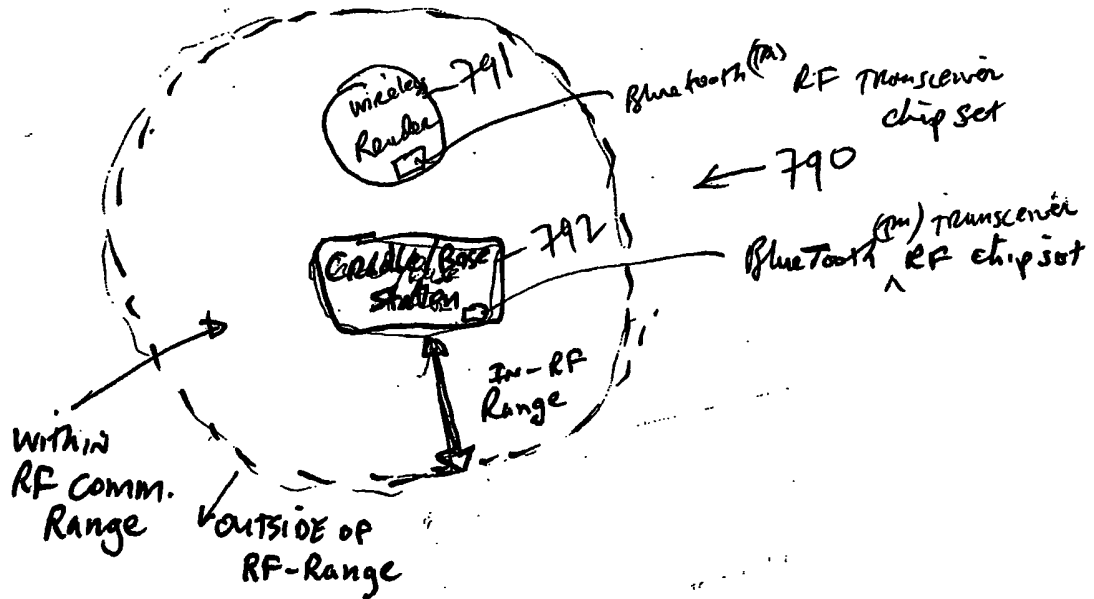 Wireless
Reader
791
Bluetooth (TM) RF Transceiver
chip set
790
Cradle/Base
Station
792
BlueTooth (TM) Transceiver
RF chip set
In-RF
Range
Within
RF Comm.
Range
OUTSIDE OF
RF-Range